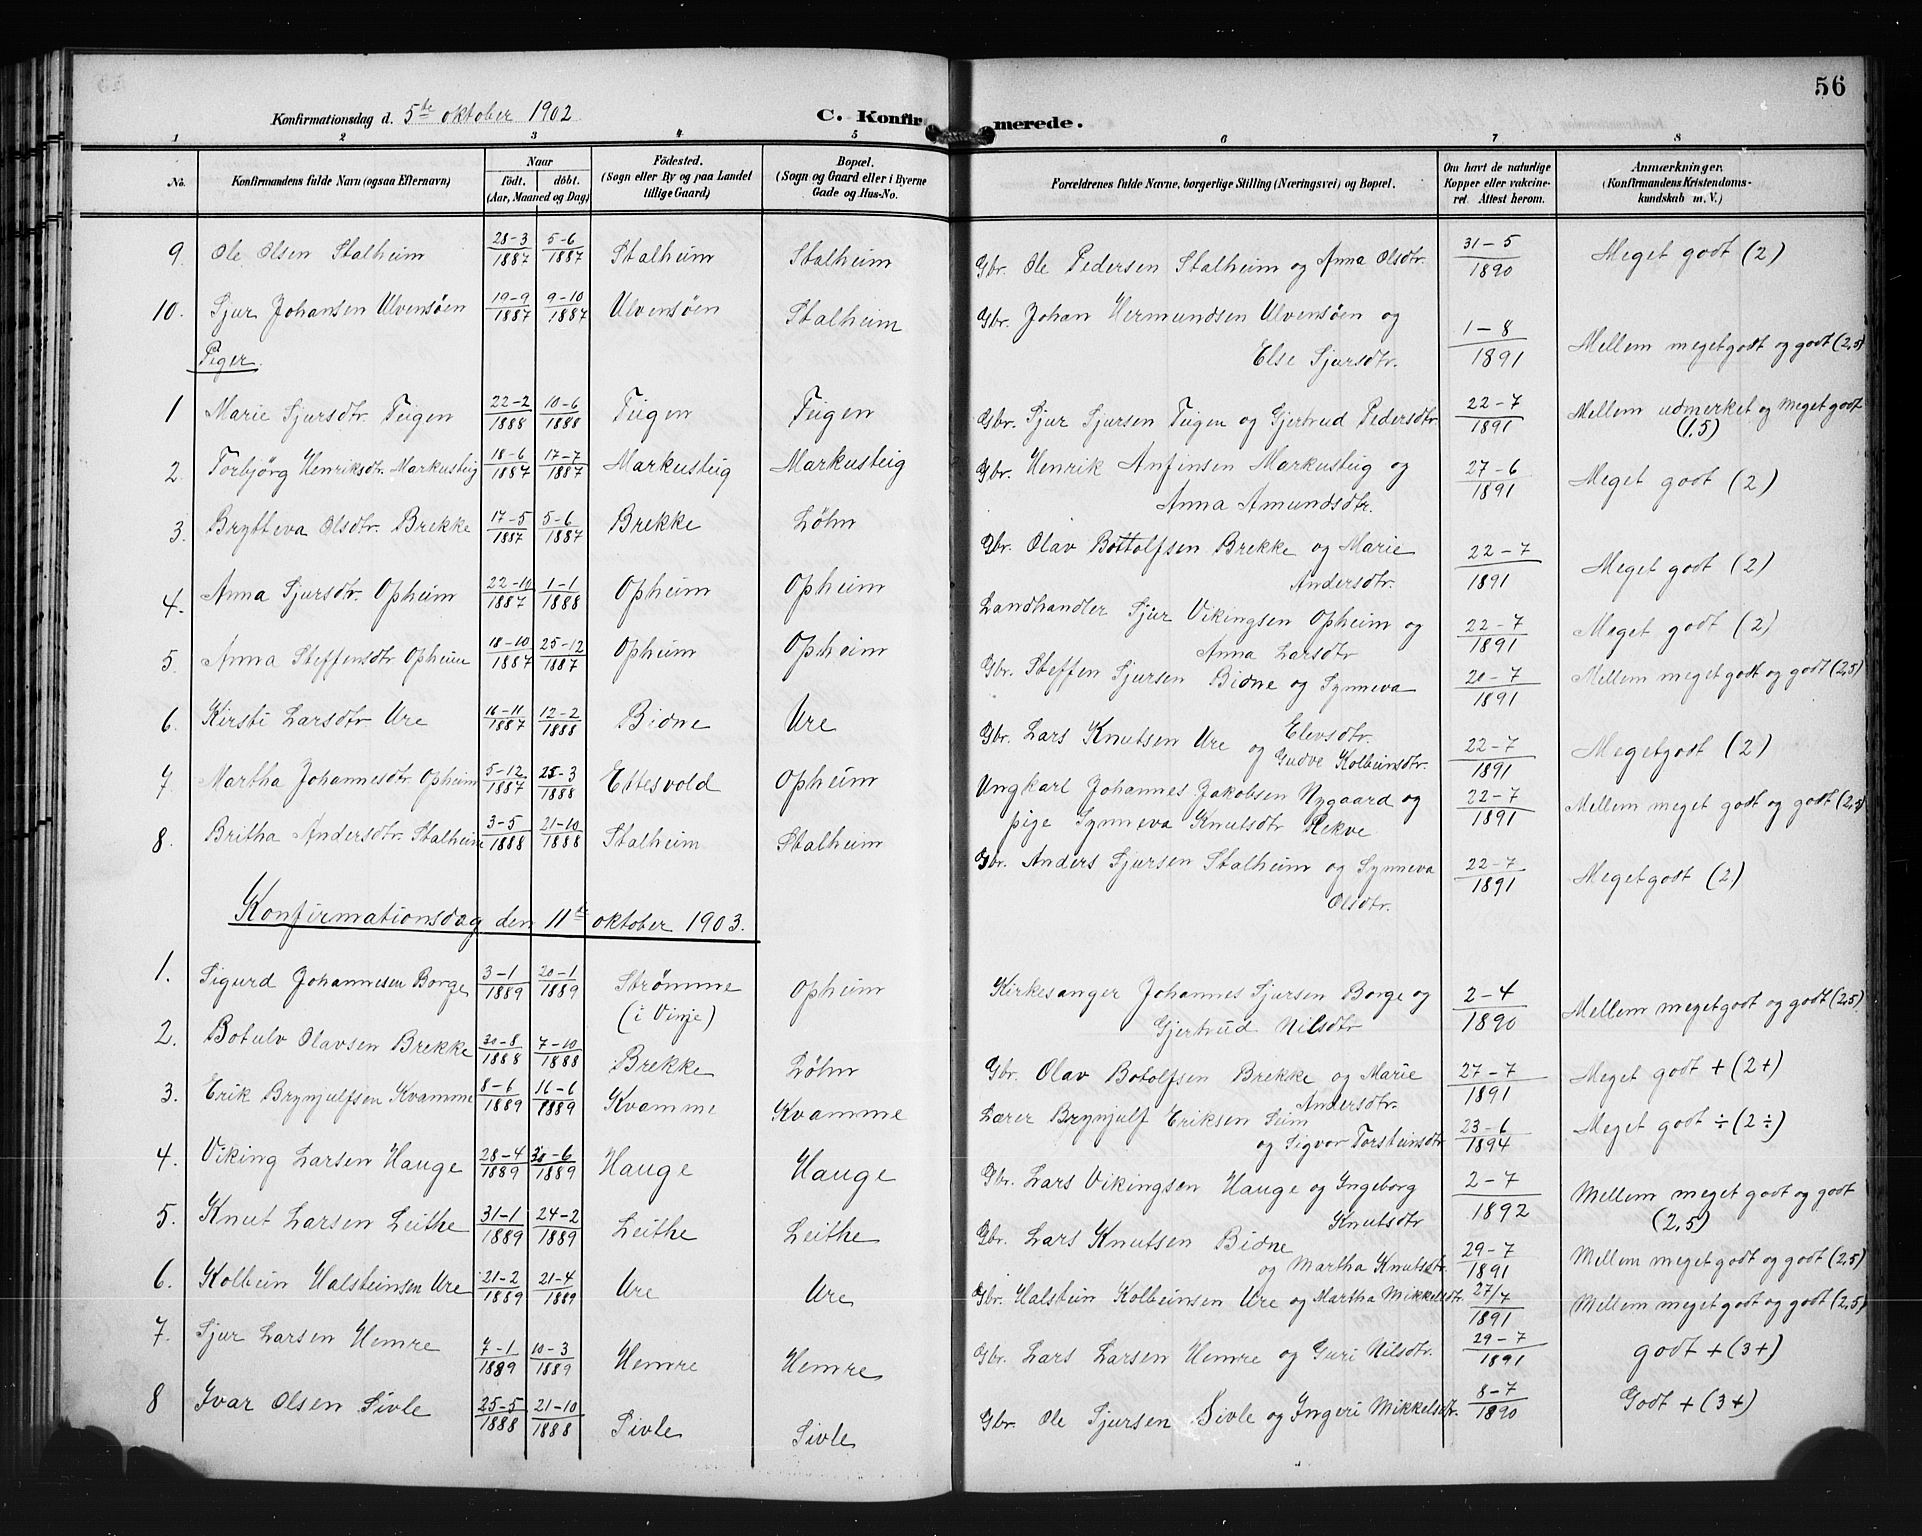 56
Konfirmationsdag d. 5te oktober 1902 C. Konfirmerede.
1 2 3 4 5 6 7 8
No. Konfirmandens fulde Navn (ogsaa Efternavn) Naar Födt. döbt. (Aar, Maaned og Dag) Födested. (Sogn eller By og paa Landet tillige Gaard) Bopæl. (Sogn og Gaard eller i Byerne Gade og Hus-No. Forældrenes fulde Navne, borgerlige Stilling (Næringsvei) og Bopæl. Om havt de naturlige Kopper eller vakcineret. Attest herom. Anmærkninger. (Konfirmandens Kristendomskundskab m. V.)
9. Ole Olsen Stalheim 28-3 1887 5-6 1887 Stalheim Stalheim Gbr. Ole Pedersen Stalheim og Anna Olsdtr. 31-5 1890 Meget godt (2)
10. Sjur Johansen Ulvensöen 19-9 1887 9-10 1887 Ulvensöen Stalheim Gbr. Johan Hermundsen Ulvensöen og Else Sjursdtr. 1-8 1891 Mellem megetgodt og godt (2,5)
Piger.
1 Marie Sjursdtr. Teigen 22-2 1888 10-6 1888 Teigen Teigen Gbr. Sjur Sjursen Teigen og Gjertrud Pedersdtr. 22-7 1891 Mellem udmerket og meget godt (1,5)
2. Torbjörg Henriksdtr. Markusteig 18-6 1887 17-7 1887 Markusteig Markusteig Gbr. Henrik Anfinsen Markusteig og Anna Amundsdtr. 27-6 1891 Meget godt (2)
3. Brytteva Olsdtr. Brekke 17-5 1887 5-6 1887 Brekke Löhn Gbr. Olav Bottolfsen Brekke og Marie Andersdtr. 22-7 1891 Meget godt (2)
4. Anna Sjursdtr. Opheim 22-10 1887 1-1 1888 Opheim Opheim Landhandler Sjur Vikingsen Opheim og Anna Larsdtr 22-7 1891 Meget godt (2)
5. Anna Steffensdtr Opheim 18-10 1887 25-12 1887 Opheim Opheim Gbr. Steffen Sjursen Bidne og Synneva Elevsdtr. 20-7 1891 Mellem meget godt og godt (2,5)
6. Kirsti Larsdtr Ure 16-11 1887 12-2 1888 Bidne Ure Gbr. Lars Knutsen Ure og Gudve Kolbeinsdtr. 22-7 1891 Megetgodt (2)
7. Martha Johannesdtr Opheim 5-12 1887 25-3 1888 Ettesvold Opheim Ungkarl Johannes Jakobsen Nygaard og pige Synneva Knutsdtr Rekve 22-7 1891 Mellem meget godt og godt (2,5)
8. Britha Andersdtr. Stalheim 3-5 1888 21-10 1888 Stalheim Stalheim Gbr. Anders Sjursen Stalheim og Synneva Olsdtr. 22-7 1891 Megetgodt (2)
Konfirmationsdag den 11te oktober 1903.
1. Sigurd Johannesen Borge 3-1 1889 20-1 1889 Strömme (i Vinje) Opheim Kirkesanger Johannes Sjursen Borge og Gjertrud Nilsdtr 2-4 1890 Mellem megetgodt og godt (2,5)
2. Botulv Olavsen Brekke 30-8 1888 7-10 1888 Brekke Löhn Gbr. Olav Botolfsen Brekke og Marie Andersdtr. 27-7 1891 Meget godt + (2+)
3. Erik Brynjulfsen Kvamme 8-6 1889 16-6 1889 Kvamme Kvamme Lærer Brynjulf Eriksen Seim og Sigvor Torsteinsdtr 23-6 1894 Meget godt ÷ (2÷)
4. Viking Larsen Hauge 28-4 1889 30-6 1889 Hauge Hauge Gbr. Lars Vikingsen Hauge og Ingeborg Knutsdtr 2-7 1892 Mellem meget godt og godt (2,5)
5. Knut Larsen Leithe 31-1 1889 24-2 1889 Leithe Leithe Gbr. Lars Knutsen Bidne og Martha Knutsdtr. 29-7 1891 Mellem megetgodt og godt (2,5)
6. Kolbein Halsteinsen Ure 21-2 1889 21-4 1889 Ure Ure Gbr. Halstein Kolbeinsen Ure og Martha Mikkelsdtr. 27/7 1891 Mellem megetgodt og godt (2,5)
7. Sjur Larsen Hemre 7-1 1889 10-3 1889 Hemre Hemre Gbr. Lars Larsen Hemre og Guri Nilsdtr. 29-7 1891 godt + (3+)
8 Ivar Olsen Sivle 25-5 1888 21-10 1888 Sivle Sivle Gbr. Ole Sjursen Sivle og Ingeri Mikkelsdtr. 8-7 1890 Godt + (3+)